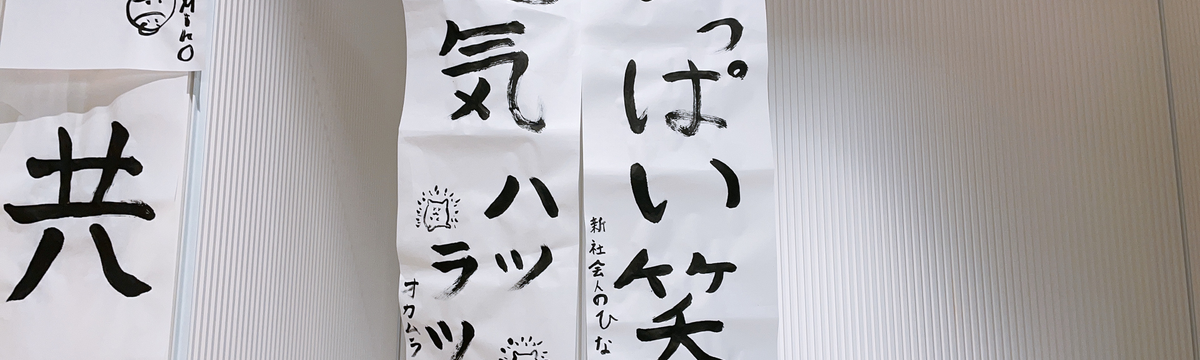 っぱい笑
新社会人のひな
気ハツ
ラツ
オカムラ
共
MiHO